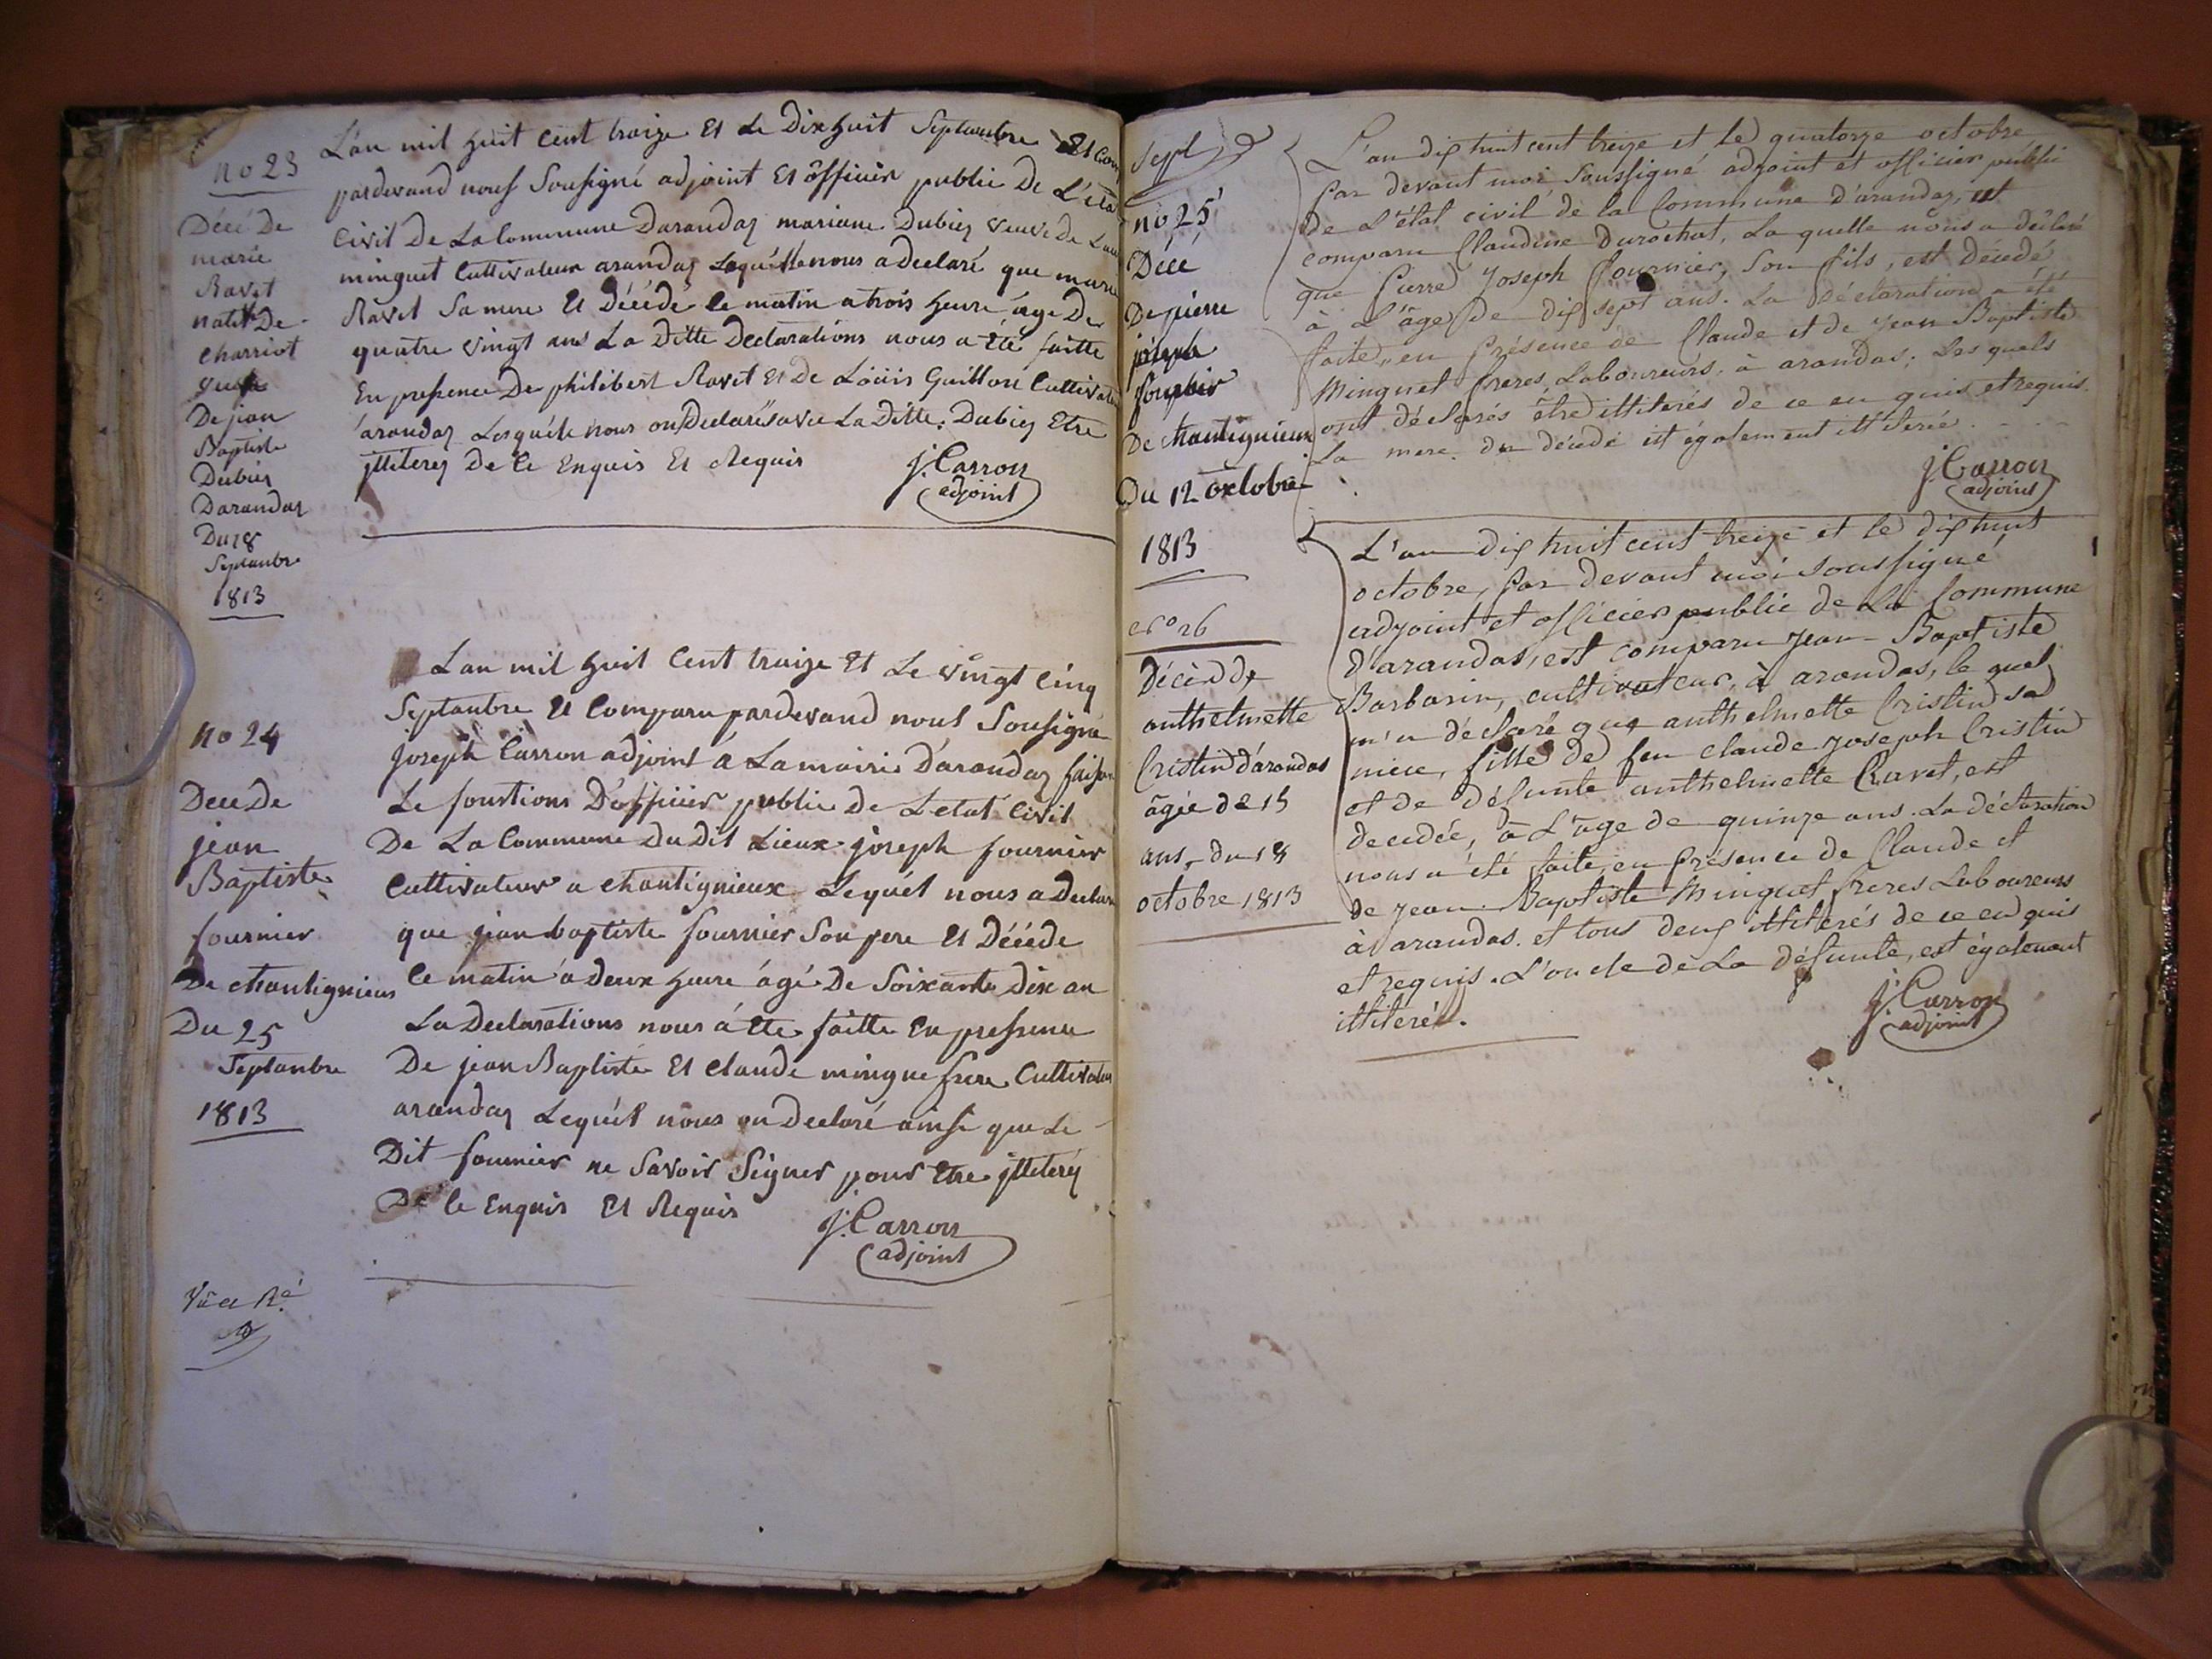 no 23
Décé De
marie
Ravet
natif De
charriot
veuve
De jean
Baptiste
Dubiez
Darandaz
Du 18
Septanbre
1813
L'an mil huit cent traize Et Le Dixhuit Septambre Et Com
pardevand nous Sousigné adjoint Et officier public De L'éta
Civil De La Commune Darandaz mariane Dubiez veuve De
minguet Cultivateur arandaz Laquelle nous a declaré que marie
Ravet Sa mere Et Décédé le matin a trois heure âge De
quatre vingt ans La Ditte Declarations nous a Eté faitte
En presence De philibert Ravet Et De Loüis Guillon Cultivateur
arandaz Lesquéle nous on Declare avec La Ditte Dubiez Etre
jlliterez De Ce Enquis Et Requis
j. Carron
adjoint
no 24
Décé De
jean
Baptiste
fournier
De chantignieux
Du 25
Septanbre
1813
Lan mil huit Cent traize Et Le vingt Cinq
Septanbre Et Comparu pardevand nous Sousigné
joseph Carron adjoint a La mairie D'arandaz faison
Le fonstions D'officier public De Letat Civil
De La Commune Du Dit Lieux joseph fournier
Cultivateur a chantignieux Lequél nous a Declare
que jean baptiste fournier Son pere Et Décéde
Ce matin a Deux heure âgé De Soixante Dix an
La Declarations nous á Ete faitte En presence
De jean Baptiste Et claude mingue frere Cultivateur
arandaz Lequél nous on Declaré ainsi que Le
Dit fournier ne Savoir Signer pour Etre jlliterez
De Ce Enquis Et Requis
j. Carron
adjoint
Vu et Ré
Sept
no 25
Décé
De pierre
joseph
fournier
De chantignieux
Du 12 octobre
1813
L'an dix huit cent treize et le quatorze octobre
par devant moi Soussigné adjoint et officier public
de L'état civil de la Commune d'arandaz, est
comparu Claudine Durochat, La quelle nous a déclaré
que Pierre Joseph fournier, Son fils, est décédé
à L'âge de dix sept ans. La déclaration a été
faite, en présence de Claude et de Jean Baptiste
Minguet freres Laboureurs, à arandas; Les quels
ont déclarés être illiterés de ce en quis et requis.
La mere du décédé est également illiterée.
j. Carron
adjoint
no 26
Décèd de
anthelmette
Cristin d'arandas
âgée de 15
ans, du 18
octobre 1813
L'an dix huit cent treize et le dix huit
octobre, par devant moi soussigné
adjoint et officier public de La Commune
d'arandas, est comparu Jean-Baptiste
Barbarin, cultivateur, à arandas, le quel
m'a déclaré que anthelmette Cristin sa
niece, fille de feu claude Joseph Cristin
et de défunte anthelmette Ravet, est
decedée, à L'âge de quinze ans. La déclaration
nous a été faite, en présence de Claude et
de Jean Baptiste Minguet freres Laboureurs
à arandas. et tous deux illiterés de ce en quis
et requis. L'oncle de La défunte, est également
illiteré.
j. Carron
adjoint